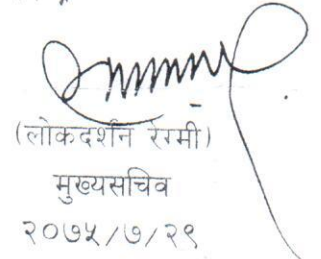 (लोकदर्शन रेग्मी)
मुख्यसचिव
२०७५/७/२९